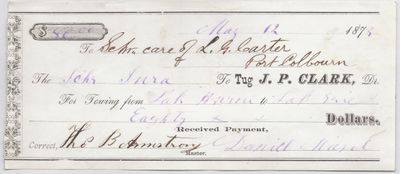 $ 80.00 May 12 187
To Schr. care of L. G. Carter
Port Colbourn
The Schr To Tug J. P. CLARK, Dr.
For Towing from Lak Huron to Lak Erie
Eaghty Dollars.
Received Payment,
Correct, Tho S B Armstrong Daniell
Master.